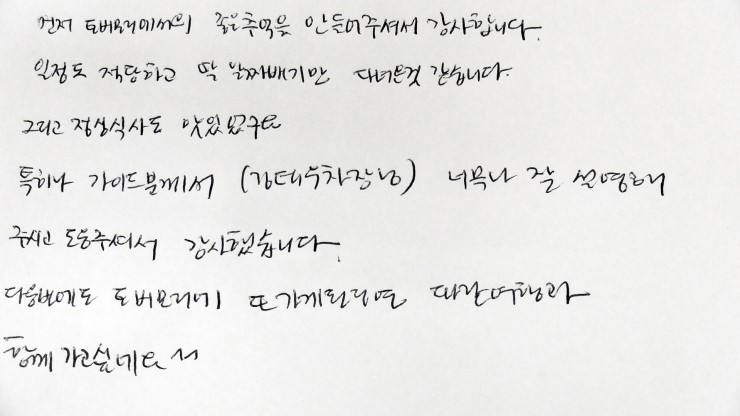 먼저 토버모리에서의 좋은추억을 만들어주셔서 감사합니다.
일정도 적당하고 딱 알짜배기만 다녀온것 같습니다.
그리고 점심식사도 맛있었구요
특히나 가이드분께서 (김태수차장님) 너무나 잘 설명해
주시고 도움주셔서 감사했습니다.
다음번에도 토버모리에 또가게된다면 파란여행과
함께 가고싶네요